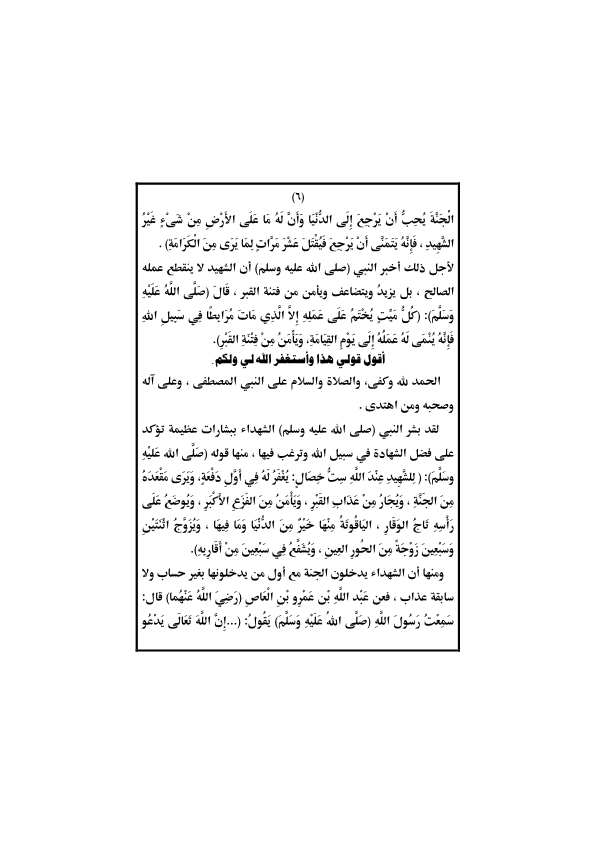 (٦)
الْجَنَّةَ يُحِبُّ أَنْ يَرْجِعَ إِلَى الدُّنْيَا وَأَنَّ لَهُ مَا عَلَى الأَرْضِ مِنْ شَىْءٍ غَيْرُ
الشَّهِيدِ ، فَإِنَّهُ يَتَمَنَّى أَنْ يَرْجِعَ فَيُقْتَلَ عَشْرَ مَرَّاتٍ لِمَا يَرَى مِنَ الْكَرَامَةِ) .
لأجل ذلك أخبر النبي (صلى الله عليه وسلم) أن الشهيد لا ينقطع عمله
الصالح ، بل يزيدُ ويتضاعف ويأمن من فتنة القبر ، قَالَ (صَلَّى اللَّهُ عَلَيْهِ
وَسَلَّمَ): (كُلُّ مَيِّتٍ يُخْتَمُ عَلَى عَمَلِهِ إِلاَّ الَّذِي مَاتَ مُرَابِطًا فِي سَبِيلِ اللهِ
فَإِنَّهُ يُنْمَى لَهُ عَمَلُهُ إِلَى يَوْمِ القِيَامَةِ، وَيَأْمَنُ مِنْ فِتْنَةِ القَبْرِ).
أقول قولي هذا وأستغفر الله لي ولكم.
الحمد لله وكفى، والصلاة والسلام على النبي المصطفى ، وعلى آله
وصحبه ومن اهتدى .
لقد بشر النبي (صلى الله عليه وسلم) الشهداء ببشارات عظيمة تؤكد
على فضل الشهادة في سبيل الله وترغب فيها ، منها قوله (صَلَّى الله عَلَيْهِ
وسَلَّمَ): ( لِلشَّهِيدِ عِنْدَ اللَّهِ سِتُّ خِصَالٍ: يُغْفَرُ لَهُ فِي أَوَّلِ دَفْعَةٍ، وَيَرَى مَقْعَدَهُ
مِنَ الجَنَّةِ ، وَيُجَارُ مِنْ عَذَابِ القَبْرِ ، وَيَأْمَنُ مِنَ الفَزَعِ الأَكْبَرِ ، وَيُوضَعُ عَلَى
رَأْسِهِ تَاجُ الوَقَارِ ، اليَاقُوتَةُ مِنْهَا خَيْرٌ مِنَ الدُّنْيَا وَمَا فِيهَا ، وَيُزَوَّجُ اثْنَتَيْنِ
وَسَبْعِينَ زَوْجَةً مِنَ الحُورِ العِينِ ، وَيُشَفَّعُ فِي سَبْعِينَ مِنْ أَقَارِبِهِ).
ومنها أن الشهداء يدخلون الجنة مع أول من يدخلونها بغير حساب ولا
سابقة عذاب ، فعن عَبْد اللَّهِ بْن عَمْرِو بْنِ الْعَاصِ (رَضِيَ اللَّهُ عَنْهُما) قال:
سَمِعْتُ رَسُولَ اللَّهِ (صَلَّى اللهُ عَلَيْهِ وَسَلَّمَ) يَقُولُ: (...إِنَّ اللَّهَ تَعَالَى يَدْعُو